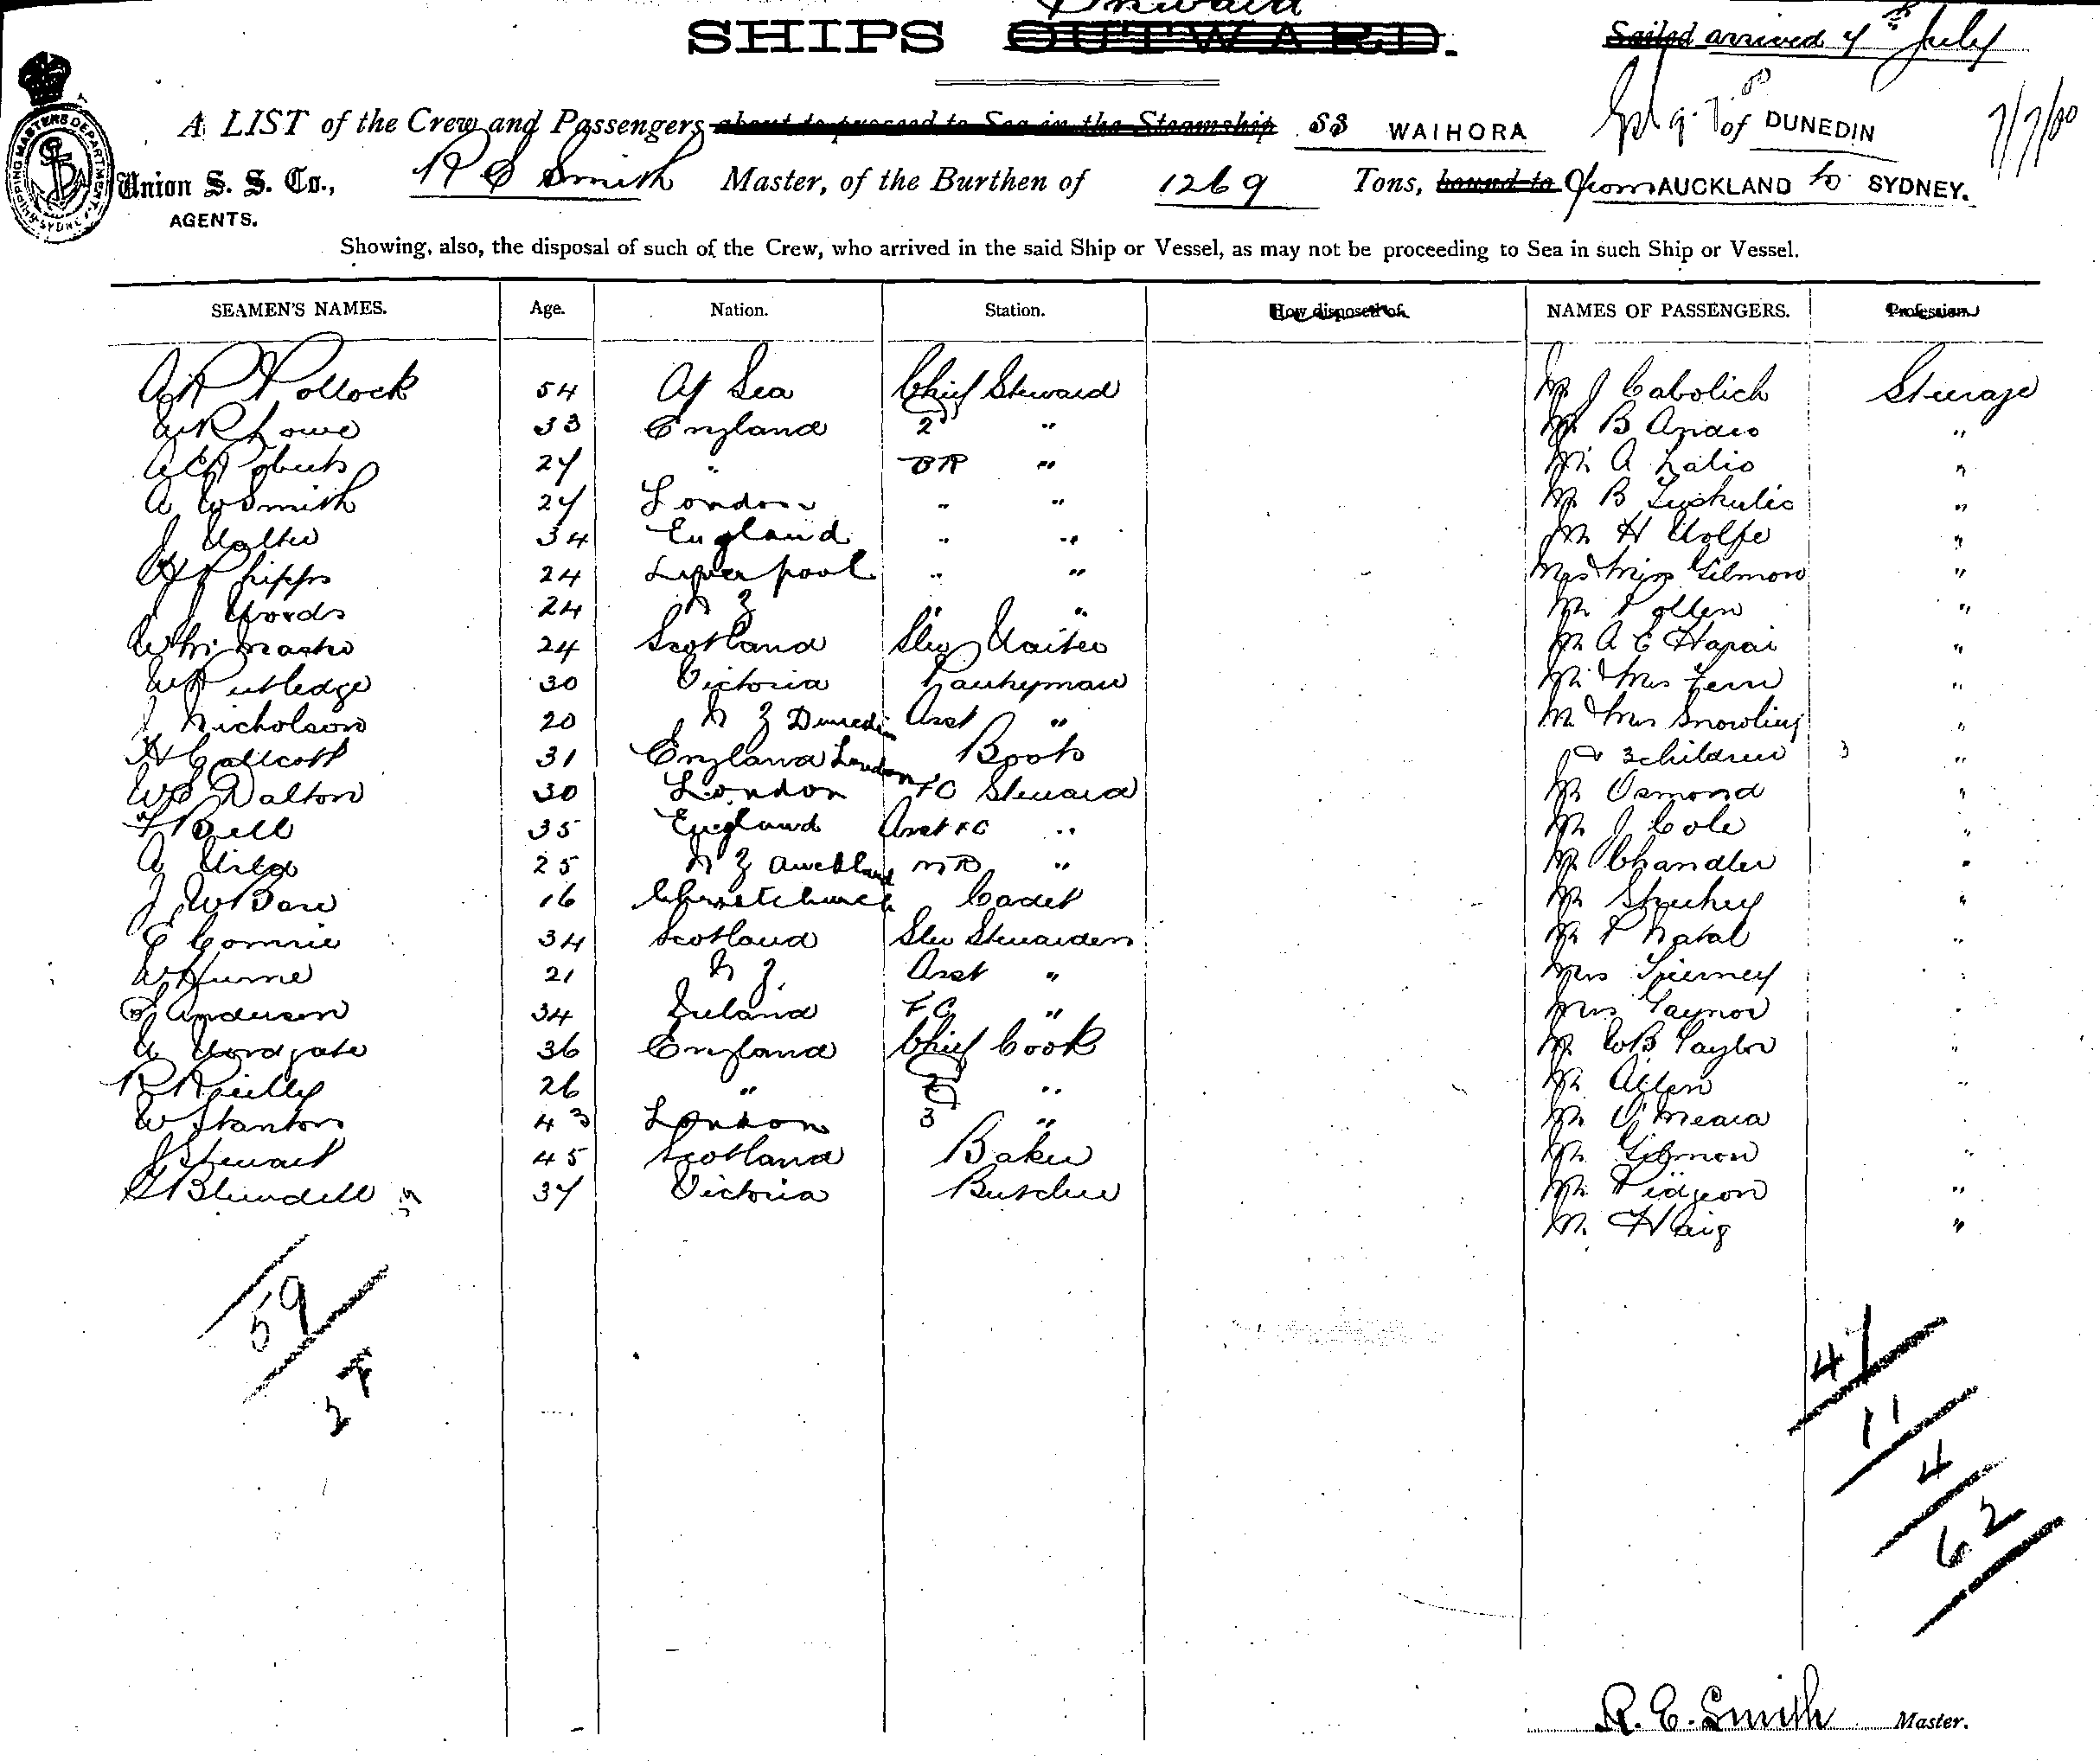 Inward
SHIPS OUTWARD.
Sailed arrived 7th July
7/7/00
A LIST of the Crew and Passengers about to proceed to Sea in the Steamship SS WAIHORA of DUNEDIN
SHIPPING MASTERS DEPARTMENT SYDNEY
Union S. S. Co., R E Smith Master, of the Burthen of 1269 Tons, bound to From AUCKLAND to SYDNEY.
AGENTS.
Showing, also, the disposal of such of the Crew, who arrived in the said Ship or Vessel, as may not be proceeding to Sea in such Ship or Vessel.
SEAMEN'S NAMES. Age. Nation. Station. How disposed of. NAMES OF PASSENGERS. Profession
Pollock 54 At Sea Chief Steward Mr J Cabolich Steerage
Lowe 33 England 2 " Mr B "
Roberts 27 " BR " Mr A "
A W Smith 27 London " " Mr B "
J Walter 34 England " " Mr H Wolfe "
H Phipps 24 Liverpool " " Mrs & Miss Gilmore "
J Words 24 N Z " " Mr Pollen "
24 Scotland Waiter Mr A E "
W Rutledge 30 Victoria Pantryman Mr & Mrs Fern "
J Nicholson 20 N Z Dunedin Asst " Mr & Mrs Snowling "
H Callcott 31 England London Boots & 3 children 3 "
W E Dalton 30 London FC Steward Mr Osmond "
Bell 35 England Asst FC " Mr J Cole "
A 25 N Z Auckland " Mr Chandler "
J W 16 Christchurch Cadet Mr "
E Comrie 34 Scotland Stewardess Mr P Natal "
Hume 21 N Z. Asst " Mrs Tierney "
Anderson 34 Ireland FC " Mrs Gaynor "
A Wordgate 36 England Chief Cook Mr W B Taylor "
R Reilly 26 " 2 " Mr Allen "
W Stanton 43 London 3 " Mr O'Meara
J Stewart 45 Scotland Baker Mr Gilmore "
G Blundell 37 Victoria Butcher Mr Pidgeon "
Mr Haig "
59
47
11
4
62
R. E. Smith Master.